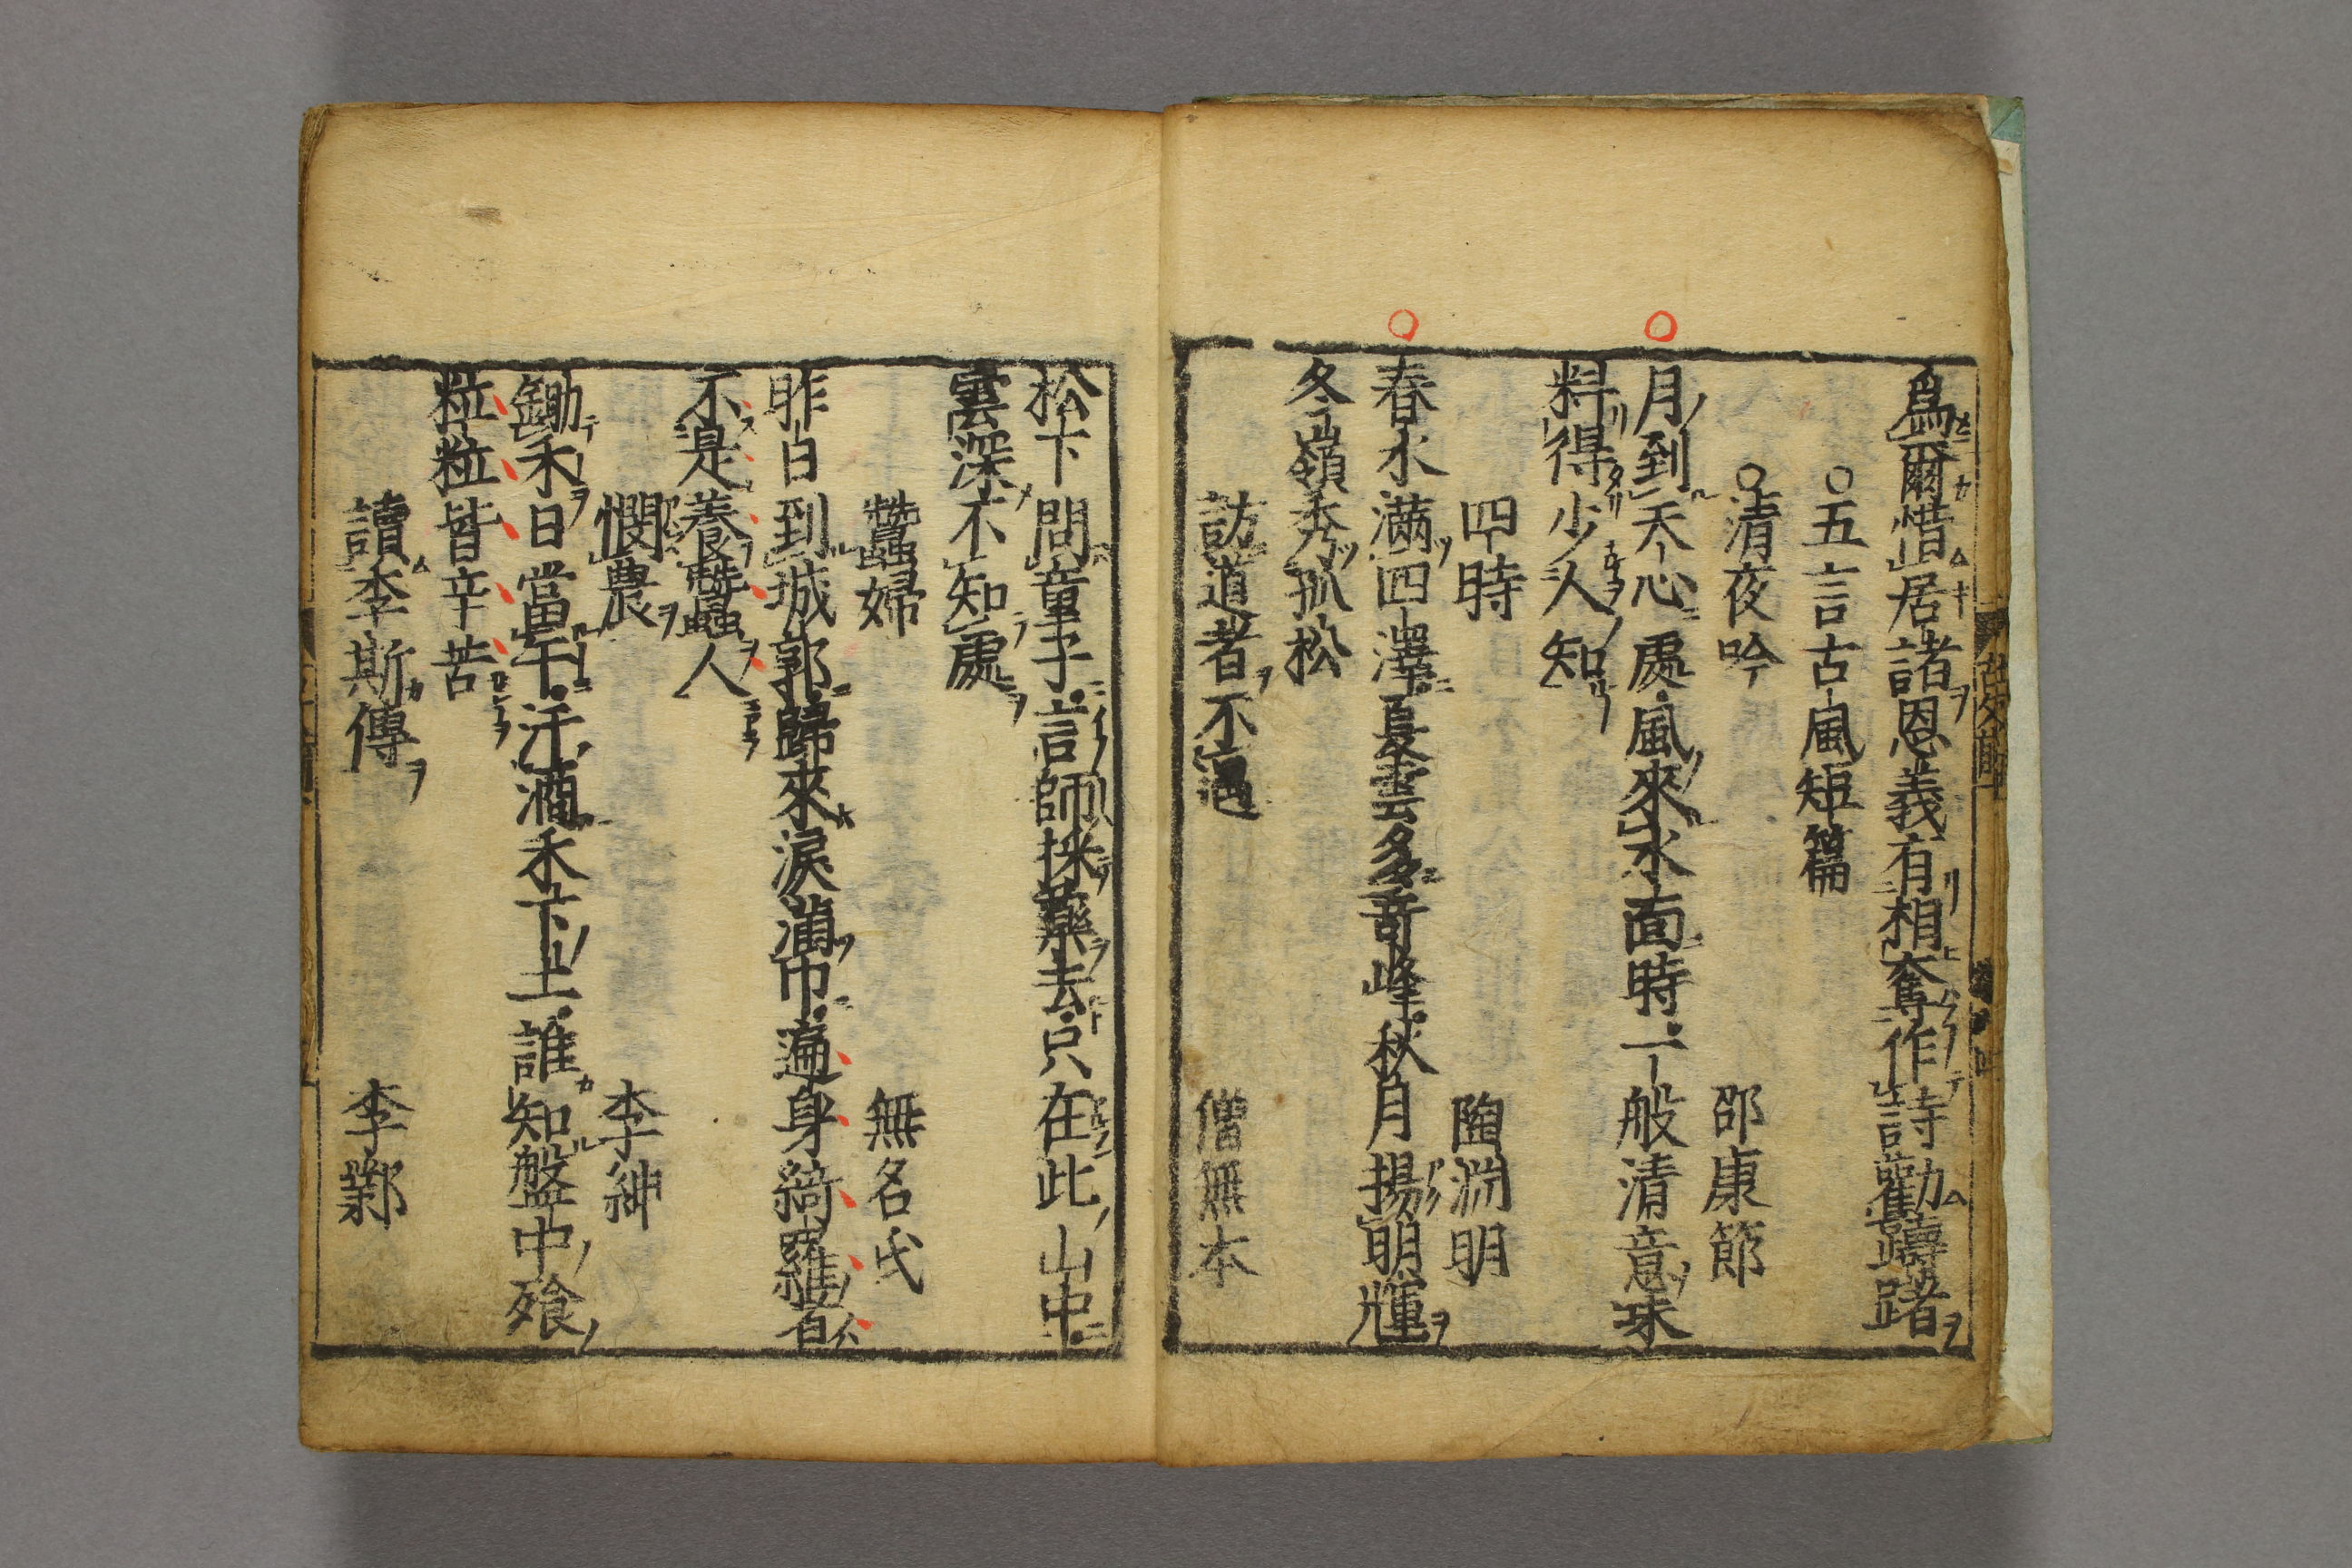 爲爾惜居諸恩義有相奪作詩勸躊躇
○五言古風短篇
○清夜吟 邵康節
月到天心處風來水面時一般清意味
料得少人知
四時 陶淵明
春水滿四澤夏雲多奇峰秋月揚明輝
冬嶺秀孤松
訪道者不遇 僧無本
松下問童子言師採藥去只在此山中
雲深不知處
蠶婦 無名氏
昨日到城郭歸來淚滿巾遍身綺羅者
不是養蠶人
憫農 李紳
鋤禾日當午汗滴禾下土誰知盤中飱
粒粒皆辛苦
讀李斯傳 李鄴